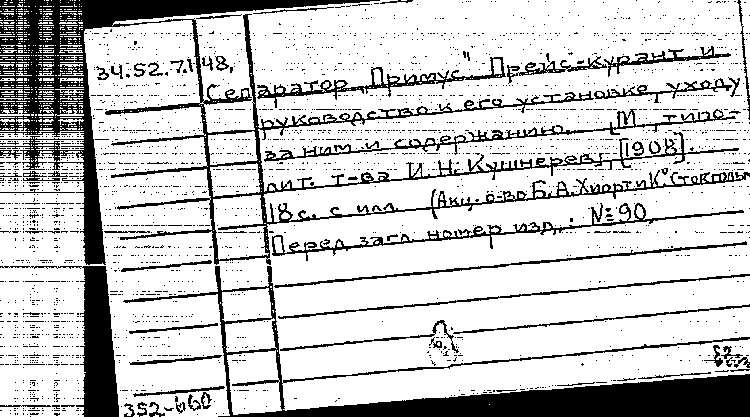 34.52.7.1.48.
Сепаратор „Примус" Прейс-курант и
руководство к его установке, уходу
за ним и содержанию. [М., типо-
лит. т-ва И. Н. Кушнерев], [1908].
18 с. с илл. (Акц. о-во Б. А. Хиорт и К° Стокгольм
Перед загл. номер изд.: № 90.
352-660